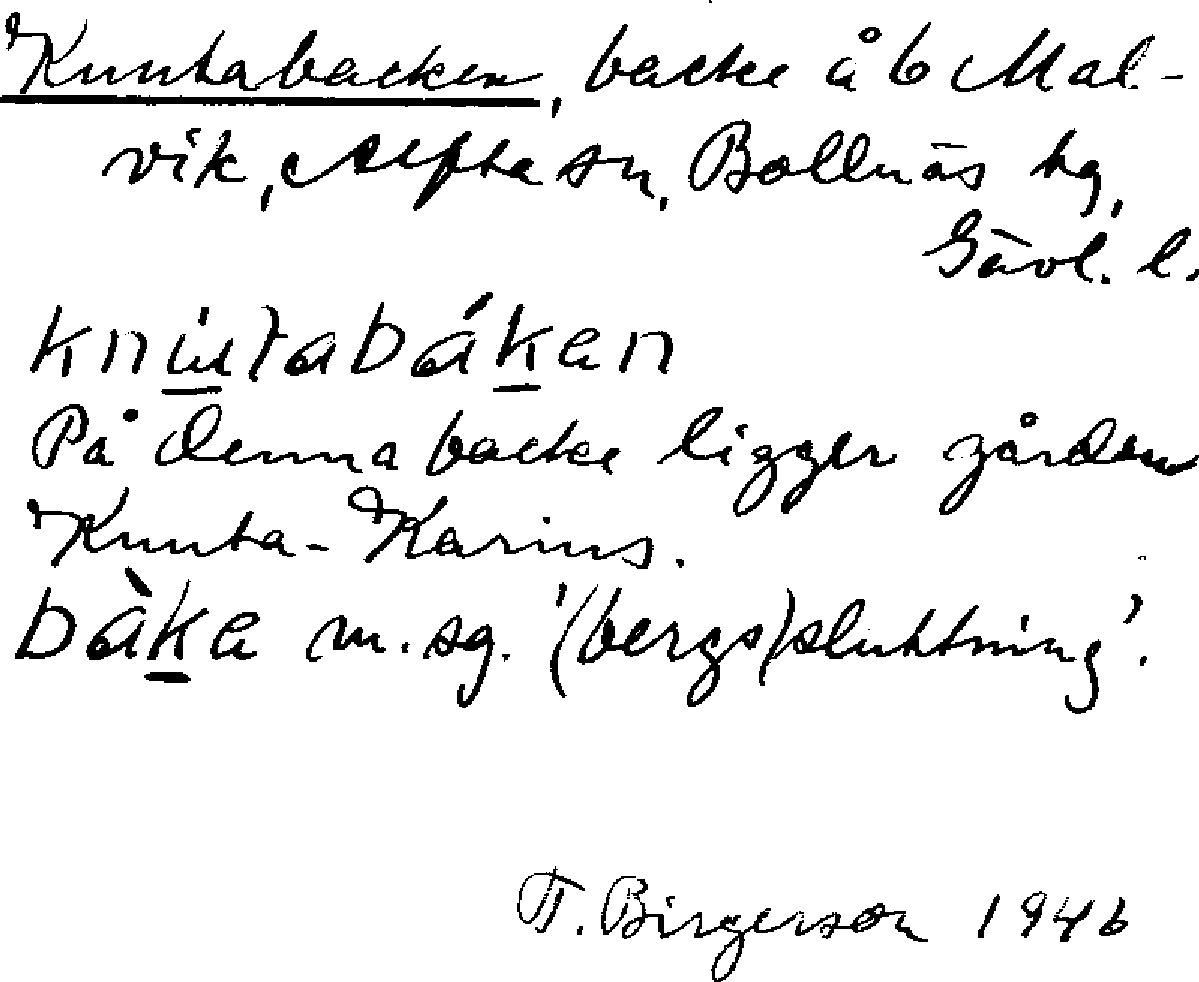 Knutabacken, backe å 6 Mal-
vik, Alfta sn, Bollnäs tg,
Gävl. l.
knútabákan
På denna backe ligger gården
Knuta-Karins.
bàka m.sg. '(bergs)sluttning'.
T. Birgerson 1946